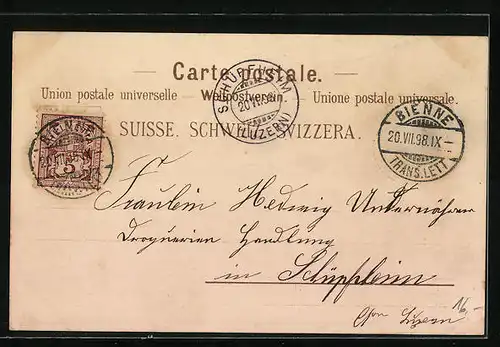 Carte postale.
Union postale universelle — Weltpostverein. — Unione postale universale.
SUISSE. SCHWEIZ. SVIZZERA.
BIENNE
5
SCHÜPFHEIM
20.VII.98
(LUZERN)
BIENNE
20.VII.98.IX—
TRANS.LETT.
Fräulein Hedwig Unternährer
Droguerien Handlung
in Schüpfheim
Cton Luzern
16,-